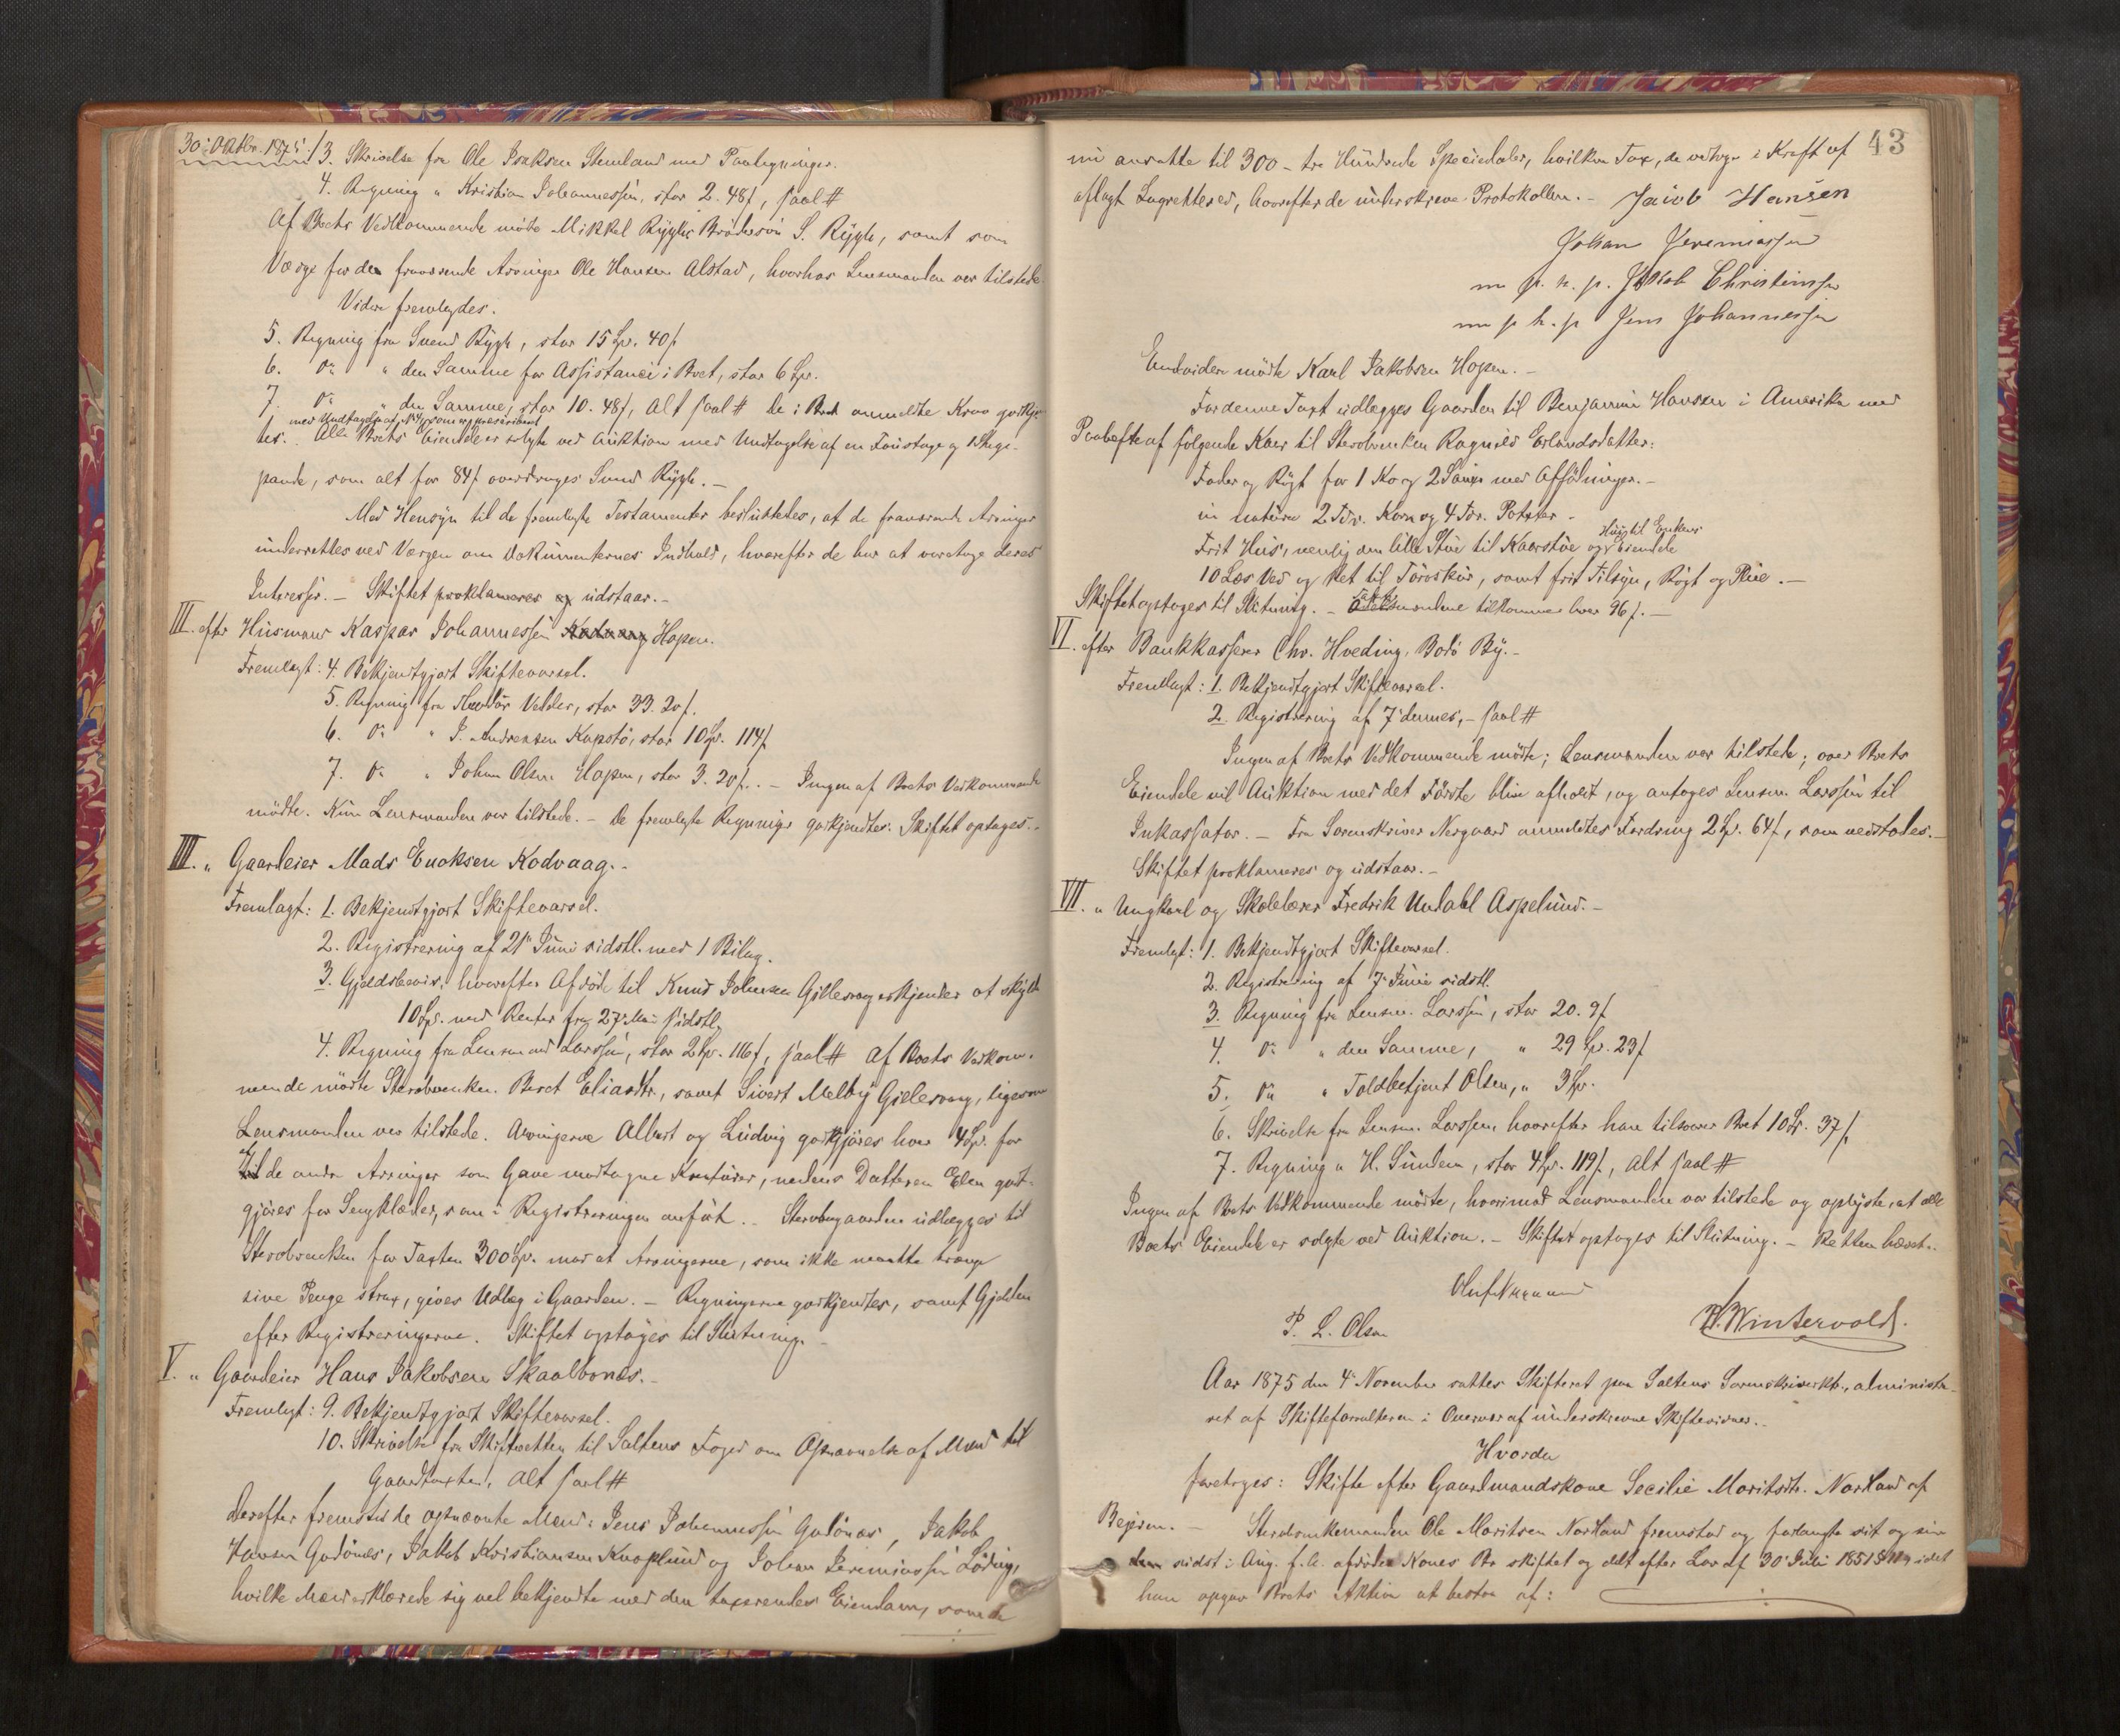 30' Oktbr. 1875. / 3. Skrivelse fra Ole Isaksen Stemland med Paategninger.
4. Regning " Kristian Johannessen, stor 2. 48 f, saal #
Af Boets Vedkommende mötte Mikkel Ryghs Brodersön S. Rygh, samt som
Værge for den fraværende Arvinger Ole Hansen Alstad, hvorhos Lensmanden var tilstede.
Videre fremlagdes.
5. Regning fra Svend Rygh, stor 15 Sp. 40 f
6. Do " den Samme for Assistance i Boet, stor 6 Sp.
7. Do " den Samme, stor 10. 48 f, alt saal # De i Boet anmeldte Krav godkjend-
med Undtagelse af No som er præscriberet
tes. Alle Boets Eiendele er solgte ved Auktion med Undtagelse af en Foustage og 1 Stege-
pande, som alt for 84 f overdrages Svend Rygh. –
Med Hensyn til de fremlagte Testamenter besluttedes, at de fraværende Arvinger
underrettes ved Værgen om Dokumenternes Indhold, hvorefter de har at varetage deres
Interesser. – Skiftet proklameres og udstaar. –
III. efter Husmand Kaspar Johannessen Hopen.
Fremlagt: 4. Bekjendtgjort Skiftevarsel.
5. Regning fra Handör Valder, stor 33. 20 f.
6. Do " J. Andreasen Kapstö, stor 10 Sp. 114 f
7. Do " Johan Olsen Hopen, stor 3. 20 f. – Ingen af Boets Vedkommende
mödte. Kun Lensmanden var tilstede. – De fremlagte Regninger godkjendtes. Skiftet optages. –
IIII. " Gaardeier Mads Enoksen Kodvaag. –
Fremlagt: 1. Bekjendtgjort Skiftevarsel.
2. Registrering af 21' Juni sidstl. med 1 Bilag.
3. Gjældsbevis, hvorefter Afdöde til Knud Johnsen Gillesvag erkjender at skylde
10 Sp. med Renter fra 27' Mai sidstl.
4. Regning fra Lensmand Larssen, stor 2 Sp. 116 f, saal # Af Boets Vedkom-
mende mödte Stervboenken Beret Eliasdtr, samt Sivert Melby Gjelesvag, ligesom
Lensmanden var tilstede. Arvingerne Albert og Ludvig godtgjöres hver 4 Sp. for
af de andre Arvinger som Gave modtagne Konfirer, medens Datteren Elen godt-
gjöres for Sengklæder, som i Registreringen anfört. – Stervbogaarden udlægges til
Stervboenken for Taxten 300 Sp. mod at Arvingerne, som ikke maatte trænge
sine Penge strax, gives Udlæg i Gaarden. – Regningerne godkjendtes, samt Gjælden
efter Registreringerne. Skiftet optages til Slutning. –
V. " Gaardeier Hans Jakobsen Skaalbonæs. –
Fremlagt: 9. Bekjendtgjort Skiftevarsel.
10. Skrivelse fra Skifteretten til Saltens Foged om Opnævnelse af Mænd til
Gaardtaxten, alt saal #
Derefter fremstod de opnævnte Mænd: Jens Johannessen Godönæs, Jakob
Hansen Godönæs, Jakob Kristiansen Knaplund og Johan Jeremiassen Löding,
hvilke Mænd erklærede sig vel bekjendte med den taxerendes Eiendom, som de
43
nu ansatte til 300 – tre Hundrede Speciedaler, hvilken Tax, de vedtoge i Kraft af
aflagt Lagretteed, hvorefter de underskreve Protokollen. – Jacob Hansen
Johan Jeremiassen
m p. h. p. Jakob Christiansen
m p h. p Jens Johannessen
Endvidere mödte Karl Jakobsen Hopen. –
For denne Taxt udlægges Gaarden til Benjamin Hansen i Amerika med
Paahefte af fölgende Kaar til Stervboenken Ragnild Erlandsdatter:
Foder og Rögt for 1 Ko og 2 Sauer med Afföldninger. –
in natura 2 Tdr. Korn og 4 Tdr. Poteter –
Frit Hus, nemlig den lille Stue til Kaarstue og Hus til Enkens Eiendele
10 Læs Ved og Ret til Törvskur, samt frit Tilsyn, Rögt og Pleie. –
Skiftet optages til Slutning. – mændene tilkommer hver 96 f. –
VI. efter Bankkasserer Chr. Hveding, Bodö By. –
Fremlagt: 1. Bekjendtgjort Skiftevarsel.
2. Registrering af 7' dennes, – saal #
Ingen af Boets Vedkommende mödte; Lensmanden var tilstede; over Boets
Eiendele vil Auktion med det Förste blive afholdt, og antages Lensm. Larssen til
Inkassator. – Fra Sorenskriver Norgaard anmeldtes Fordring 2 Sp. 64 f, som vedtoges. –
Skiftet proklameres og udstaar. –
VII. " Ungkarl og Skolelærer Fredrik Undahl Aspelund. –
Fremlagt: 1. Bekjendtgjort Skiftevarsel.
2. Registrering af 7' Juni sidstl.
3. Regning fra Lensm. Larssen, stor 20. 9 f
4. Do " den Samme, " 29 Sp. 23 f
5. Do " Toldbetjent Olsen, " 3 Sp.
6. Skrivelse fra Lensm. Larssen, hvorefter han tilsvarer Boet 10 Sp. 37 f.
7. Regning " H. Sundem, stor 4 Sp. 119 f, alt saal #
Ingen af Boets Vedkommende mödte, hvorimod Lensmanden var tilstede og oplyste, at alle
Boets Eiendele er solgte ved Auktion. – Skiftet optages til Slutning. – Retten hævet. –
P. L. Olsen
Wintervold.
Aar 1875 den 4' November sattes Skifteret paa Saltens Sorenskriverkt., administre-
ret af Skifteforvalteren i Overvær af underskrevne Skiftevidner. –
Hvorda
foretoges: Skifte efter Gaardmandskone Secilie Moritsdtr. Nordland af
Bejern. – Stervboenkemanden Ole Moritsen Nordland fremstod og forlangte sit og sin
sidst i Aug. f. A. afdöde Kones Bo skiftet og delt efter Lov af 30' Juli 1851 § idet
han opgav Boets Aktiva at bestaa af: